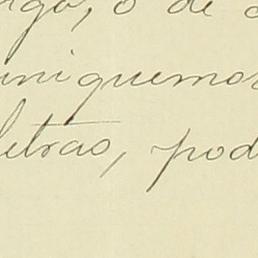 rgo, o de
uniquemos
letras, pod